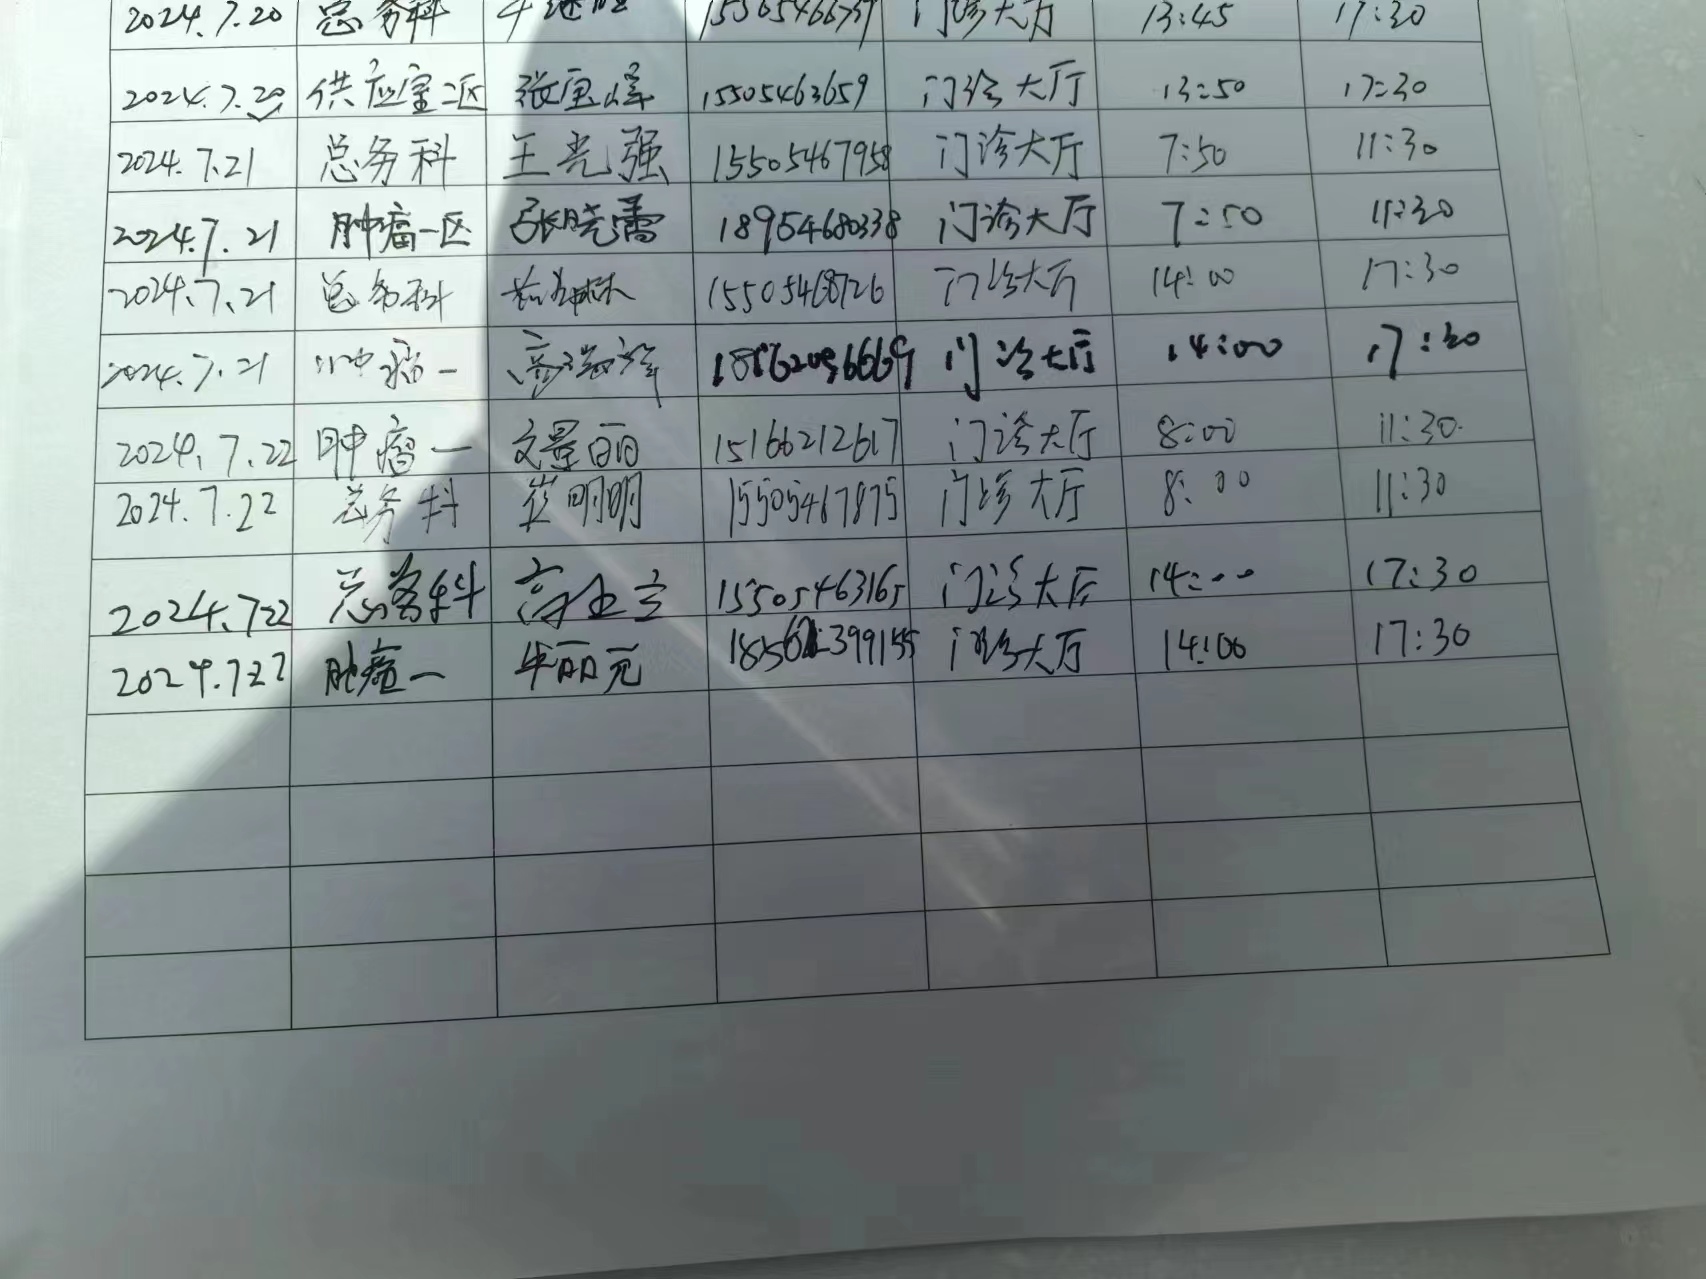 2024.7.20 总务科 13:45 17:30
2024.7.20 供应室二区 张宝峰 15505463659 门诊大厅 13:50 17:30
2024.7.21 总务科 王光强 15505467958 门诊大厅 7:50 11:30
2024.7.21 肿瘤一区 张晓蕾 18954680338 门诊大厅 7:50 11:30
2024.7.21 总务科 15505468726 门诊大厅 14:00 17:30
2024.7.21 肿瘤一 门诊大厅 14:00 17:30
2024.7.22 肿瘤一 文景丽 15166212617 门诊大厅 8:00 11:30
2024.7.22 总务科 崔明明 15505467875 门诊大厅 8:00 11:30
2024.7.22 总务科 15505463165 门诊大厅 14:00 17:30
2024.7.22 肿瘤一 门诊大厅 14:00 17:30